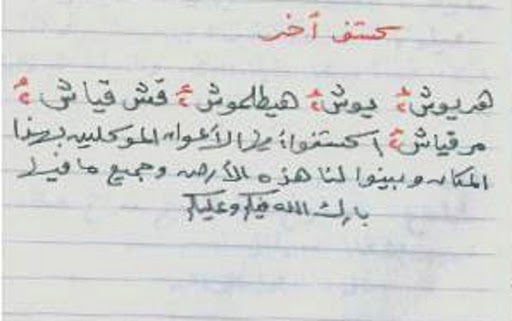 كشف آخر
هديوش ٢ يوش ٢ هيطلموش ٢ قش قياش ٢
مرقياش ٢ اكشفوا يا الأعوان الموكلين بهذا
المكان وبينوا لنا هذه الأرض وجميع ما فيها
بارك الله فيكم وعليكم